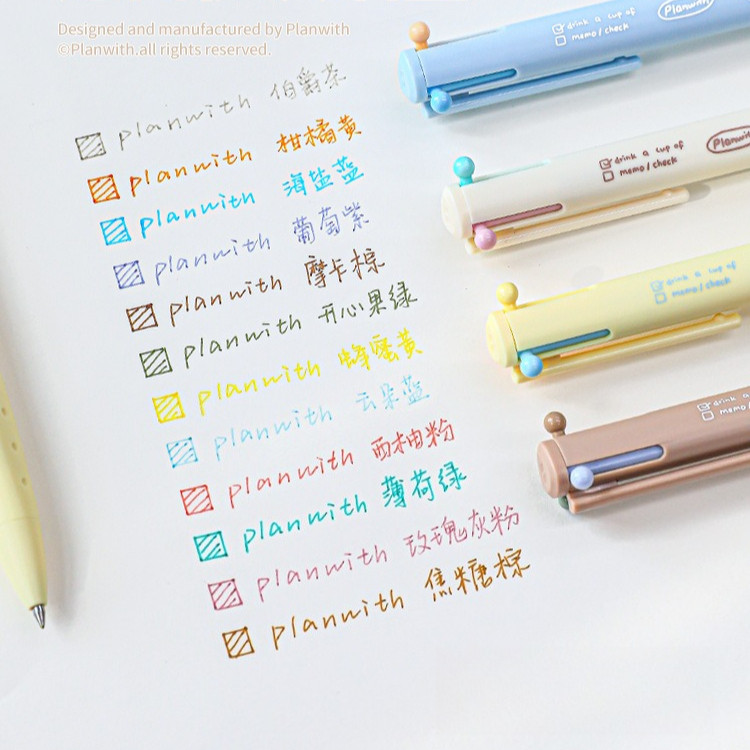 Designed and manufactured by Planwith
©Planwith.all rights reserved.
planwith 伯爵茶
planwith 柑橘黄
planwith 海盐蓝
planwith 葡萄紫
planwith 摩卡棕
planwith 开心果绿
planwith 蜂蜜黄
planwith 云朵蓝
planwith 西柚粉
planwith 薄荷绿
planwith 玫瑰灰粉
planwith 焦糖棕
drink a cup of
memo/check
Planwith
drink a cup of
memo/check
Planwith
drink a cup of
memo/check
drink a
memo/